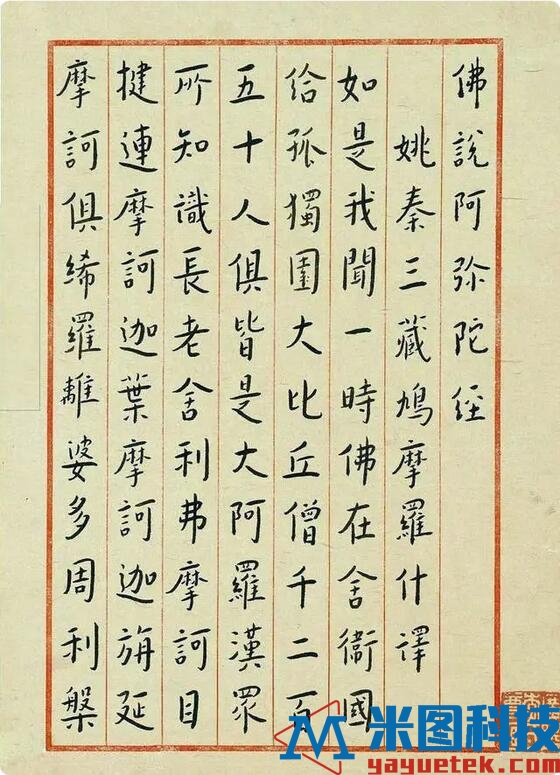 佛說阿弥陀经
姚秦三藏鳩摩羅什譯
如是我聞一時佛在舍衛國
给孤獨園大比丘僧千二百
五十人俱皆是大阿羅漢眾
所知識長老舍利弗摩訶目
揵連摩訶迦葉摩訶迦旃延
摩訶俱絺羅離婆多周利槃
米图科技
yayuetek.com